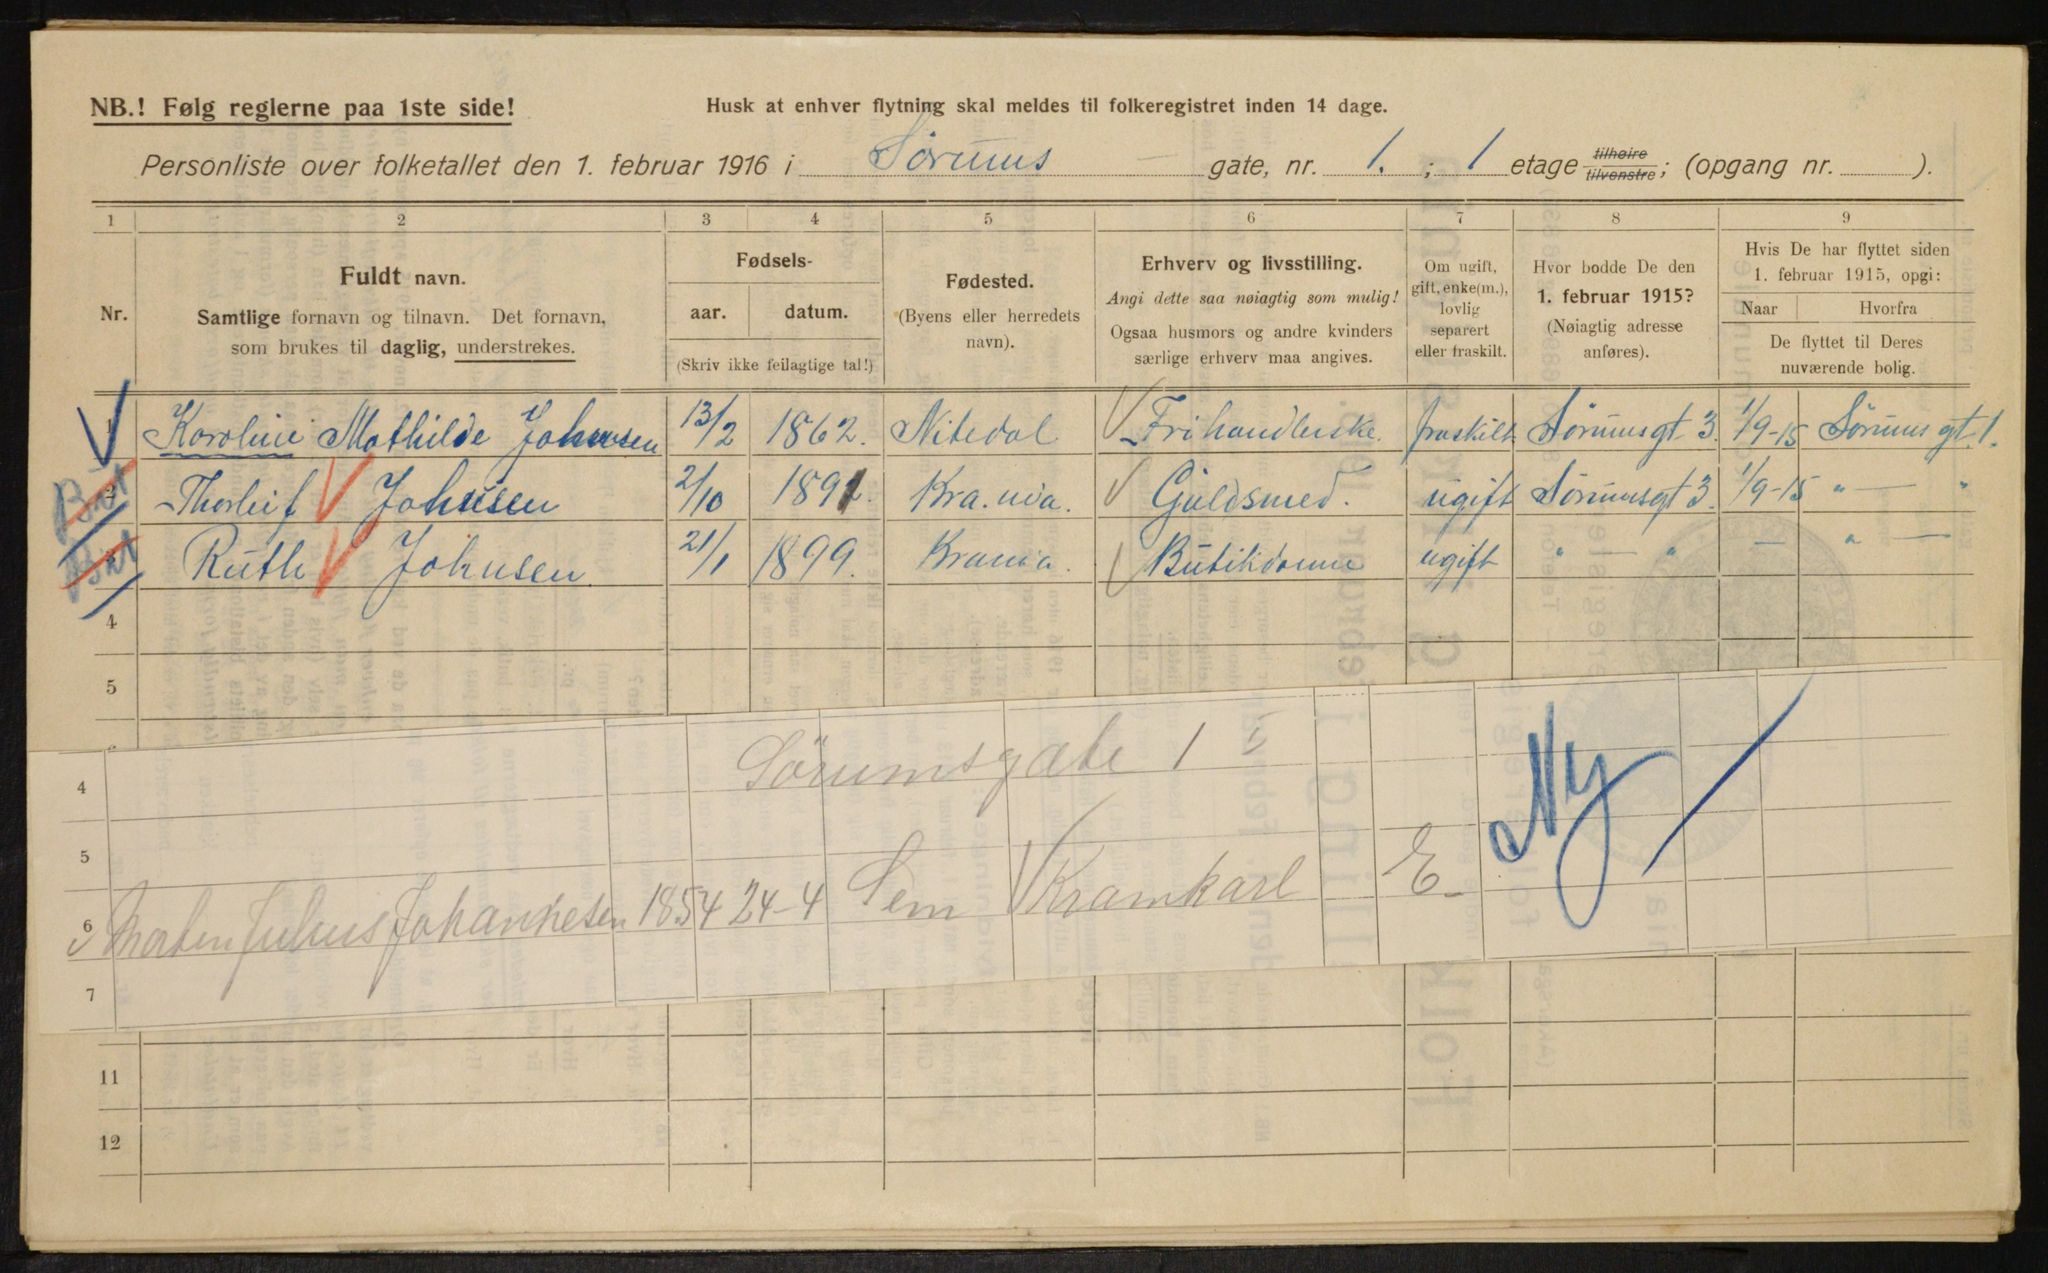 NB.! Følg reglerne paa 1ste side!
Husk at enhver flytning skal meldes til folkeregistret inden 14 dage.
Personliste over folketallet den 1. februar 1916 i Sørums gate, nr. 1. ; 1 etage tilhøire tilvenstre; (opgang nr. ).
1 2 3 4 5 6 7 8 9
Nr.
Fuldt navn.
Samtlige fornavn og tilnavn. Det fornavn,
som brukes til daglig, understrekes.
Fødsels-
aar. datum.
(Skriv ikke feilagtige tal!)
Fødested.
(Byens eller herredets
navn).
Erhverv og livsstilling.
Angi dette saa nøiagtig som mulig!
Ogsaa husmors og andre kvinders
særlige erhverv maa angives.
Om ugift,
gift, enke(m.),
lovlig
separert
eller fraskilt.
Hvor bodde De den
1. februar 1915?
(Nøiagtig adresse
anføres).
Hvis De har flyttet siden
1. februar 1915, opgi:
Naar Hvorfra
De flyttet til Deres
nuværende bolig.
1 Karoline Mathilde Johnsen 13/2 1862. Nitedal Frihandlerske. fraskilt Sørumsgt 3. 1/9-15 Sørums gt. 1.
2 Thorleif Johnsen 2/10 1891. Kra.nia. Guldsmed. ugift Sørumsgt 3. 1/9-15 " — "
3 Ruth Johnsen 21/1 1899. Krania. Butikdame ugift " — " — " —
4
5
Sørumsgate 1
4
5
6 Morten Julius Johannesen 1854 24-4 Sem Kramkarl E. Ny
7
11
12